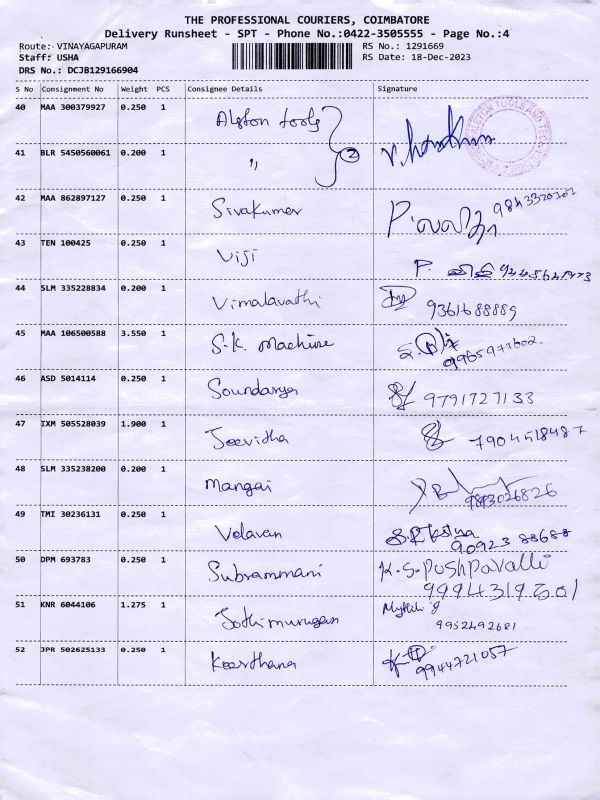 THE PROFESSIONAL COURIERS, COIMBATORE
Delivery Runsheet - SPT - Phone No.:0422-3505555 - Page No.:4
Route: VINAYAGAPURAM RS No.: 1291669
Staff: USHA RS Date: 18-Dec-2023
DRS No.: DCJB129166904
S No Consignment No Weight PCS Consignee Details Signature
40 MAA 300379927 0.250 1 Alston tools
41 BLR 5450560061 0.200 1 " 2
42 MAA 862897127 0.250 1 Sivakumar
43 TEN 100425 0.250 1 Viji
44 SLM 335228834 0.200 1 Vimalavathi 9361688889
45 MAA 106500588 3.550 1 S.K. Machine
46 ASD 5014114 0.250 1 Soundarya 9791727133
47 IXM 505528039 1.900 1 Jeevitha 7904518487
48 SLM 335238200 0.200 1 Mangai 9843026826
49 TMI 30236131 0.250 1 Velavan 90923 88688
50 DPM 693783 0.250 1 Subrammani K.S.Pushpavalli
9994319201
51 KNR 6044106 1.275 1 Jothimurugan
9952492681
52 JPR 502625133 0.250 1 Keerthana 9944721057